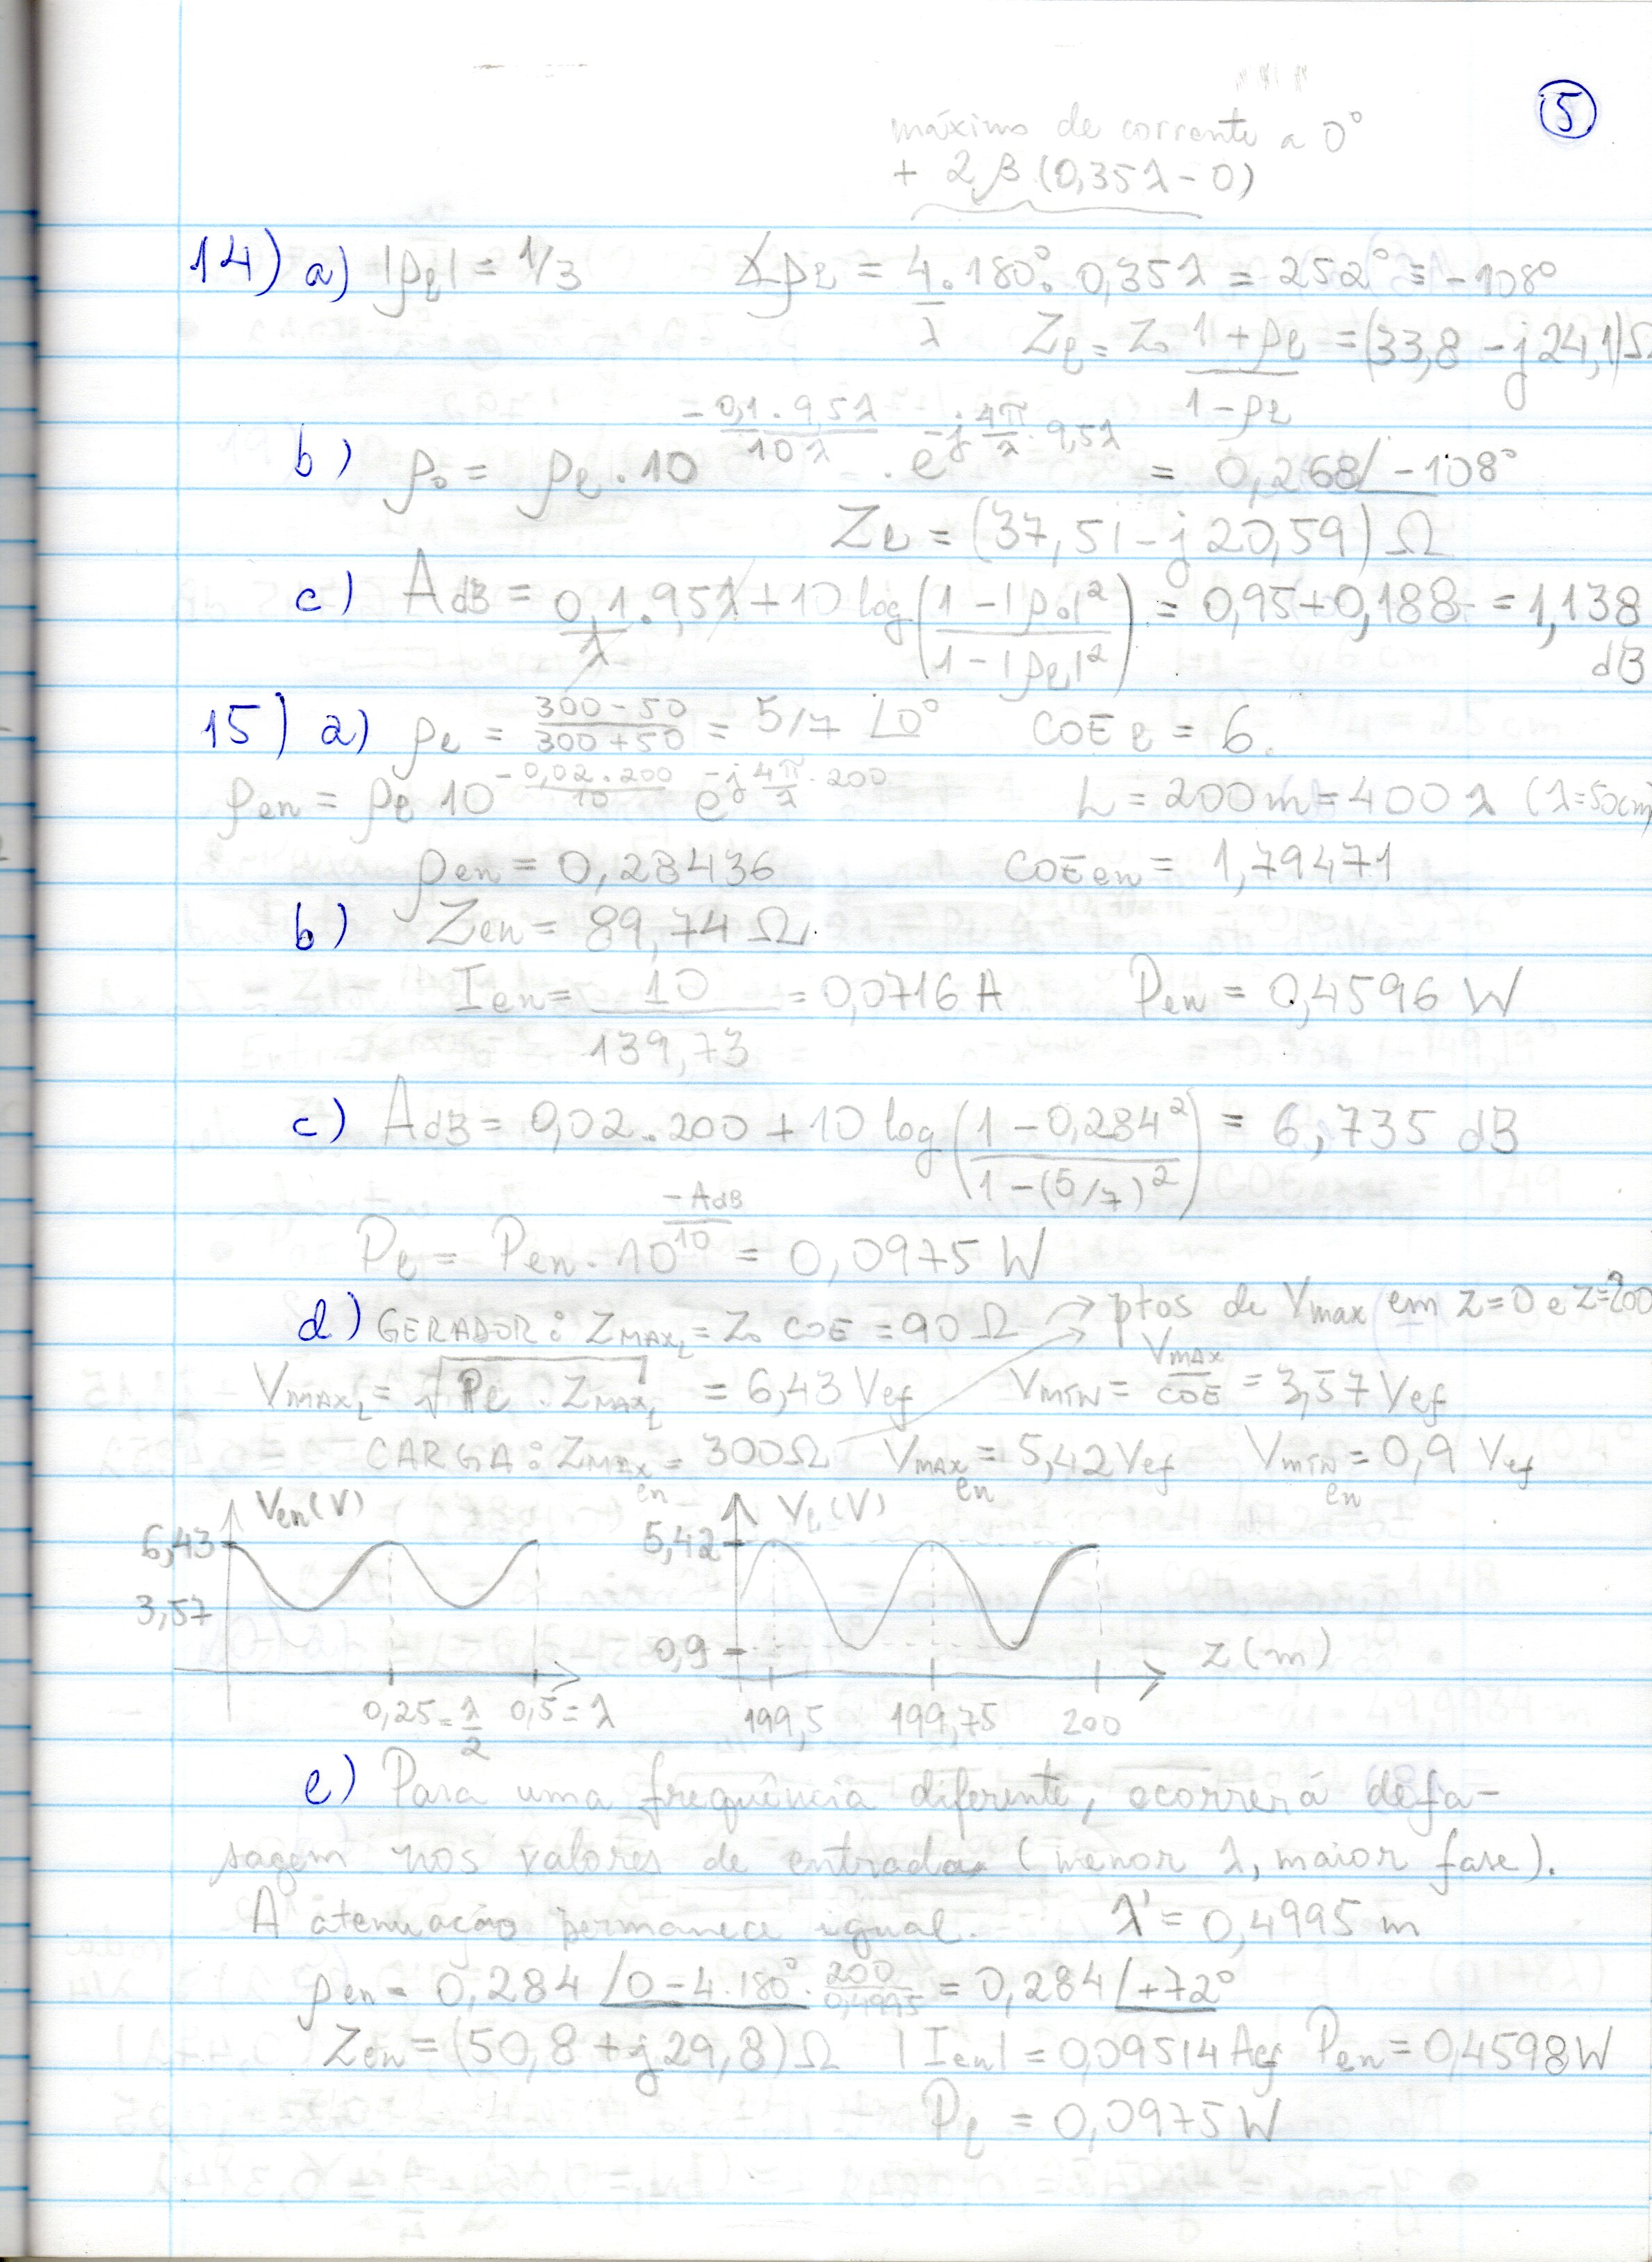 5
máximo de corrente a 0°
+ 2β(0,35λ-0)
14) a) |ρℓ| = 1/3 ∡ρℓ = 4/λ · 180° · 0,35λ = 252° ≡ -108°
Zℓ = Z₀ (1+ρℓ)/(1-ρℓ) = (33,8 - j24,1)Ω
b) ρ₀ = ρℓ · 10^(-0,1·9,5λ/10λ) · e^(-j 4π/λ · 9,5λ) = 0,268/-108°
Zℓ = (37,51 - j20,59)Ω
c) AdB = 0,1/λ · 9,5λ + 10 log((1-|ρ₀|²)/(1-|ρℓ|²)) = 0,95+0,188 = 1,138 dB
15) a) ρℓ = (300-50)/(300+50) = 5/7 /0° COEℓ = 6.
ρen = ρℓ 10^(-0,02·200/10) e^(-j 4π/λ · 200) L = 200m = 400λ (λ=50cm)
ρen = 0,28436 COEen = 1,79471
b) Zen = 89,74 Ω
Ien = 10/139,73 = 0,0716 A Pen = 0,4596 W
c) AdB = 0,02·200 + 10 log((1-0,284²)/(1-(5/7)²)) = 6,735 dB
Pℓ = Pen · 10^(-AdB/10) = 0,0975 W
d) GERADOR: ZMAXL = Z₀ COE = 90Ω → ptos de Vmax em z=0 e z=200
VMAXL = √(Pℓ · ZMAXL) = 6,43 Vef VMÍN = VMAX/COE = 3,57 Vef
CARGA: ZMAXen = 300Ω VMAXen = 5,42 Vef VMÍNen = 0,9 Vef
Ven(V) Vℓ(V)
6,43 5,42
3,57 0,9 z(m)
0,25=λ/2 0,5=λ 199,5 199,75 200
e) Para uma frequência diferente, ocorrerá defa-
sagem nos valores de entrada (menor λ, maior fase).
A atenuação permanece igual. λ' = 0,4995 m
ρen = 0,284 /0-4·180°·200/0,4995 = 0,284 /+72°
Zen = (50,8 + j29,8)Ω |Ien| = 0,09514 Aef Pen = 0,4598W
Pℓ = 0,0975 W